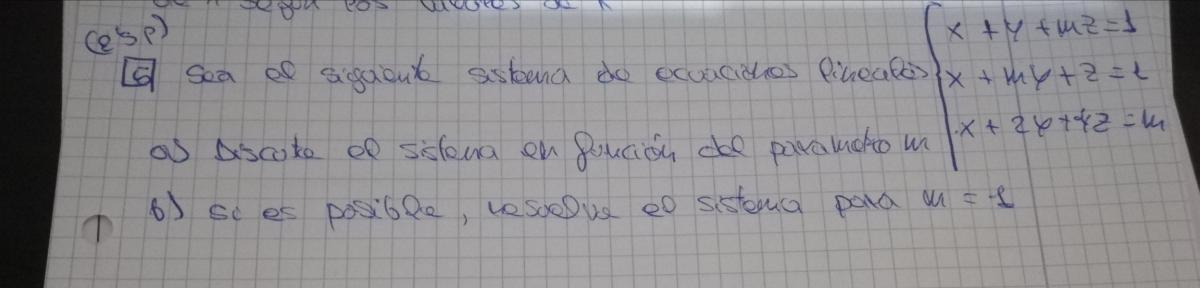 (esp)
5 Sea el siguiente sistema de ecuaciones lineales
x + y + mz = 1
x + my + z = 1
x + 2y + 4z = m
a) Discute el sistema en función del parametro m
b) Si es posible, resuelve el sistema para m = -1